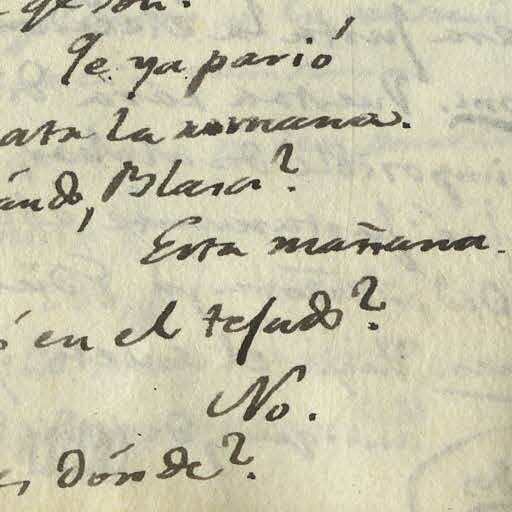 Qe ya parió
ata la romana.
ándo, Blasa?
Esta mañana.
ó en el tejado?
No.
es dónde?